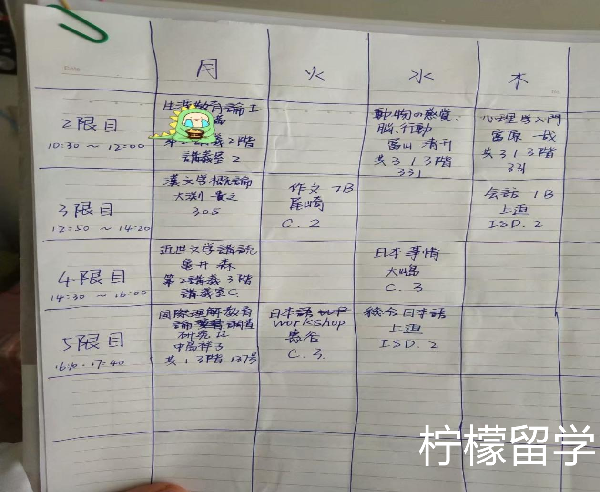 月 火 水 木
2限目
10:30 ~ 12:00
生涯教育論 I
講義室 2
動物の感覚、
脳、行動
富山 清升
共 3 1 3階
331
心理学入門
富原 一哉
共 3 1 3階
331
3限目
12:50 ~ 14:20
漢文学概論
大渕 貴之
305
作文 7B
尾崎
C. 2
会話 1B
上迫
I>D. 2
4限目
14:30 ~ 16:00
近世文学講読
亀井 森
第2講義 3階
講義室C.
日本事情
大嶋
C. 3
5限目
16:10 - 17:40
国際理解教育
研究 II
共 1 3階 137号
日本語
workshop
C. 3.
総合日本語
上迫
I>D. 2
柠檬留学